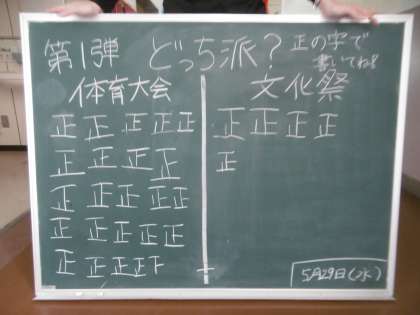 第1弾 どっち派? 正の字で
書いてね!!
体育大会 文化祭
正 正 正 正 正 正 正 正 正
正 正 正 正 正
正 正 正 正 正
正 正 正 正 正
正 正 正 正 下 一
5月29日(水)